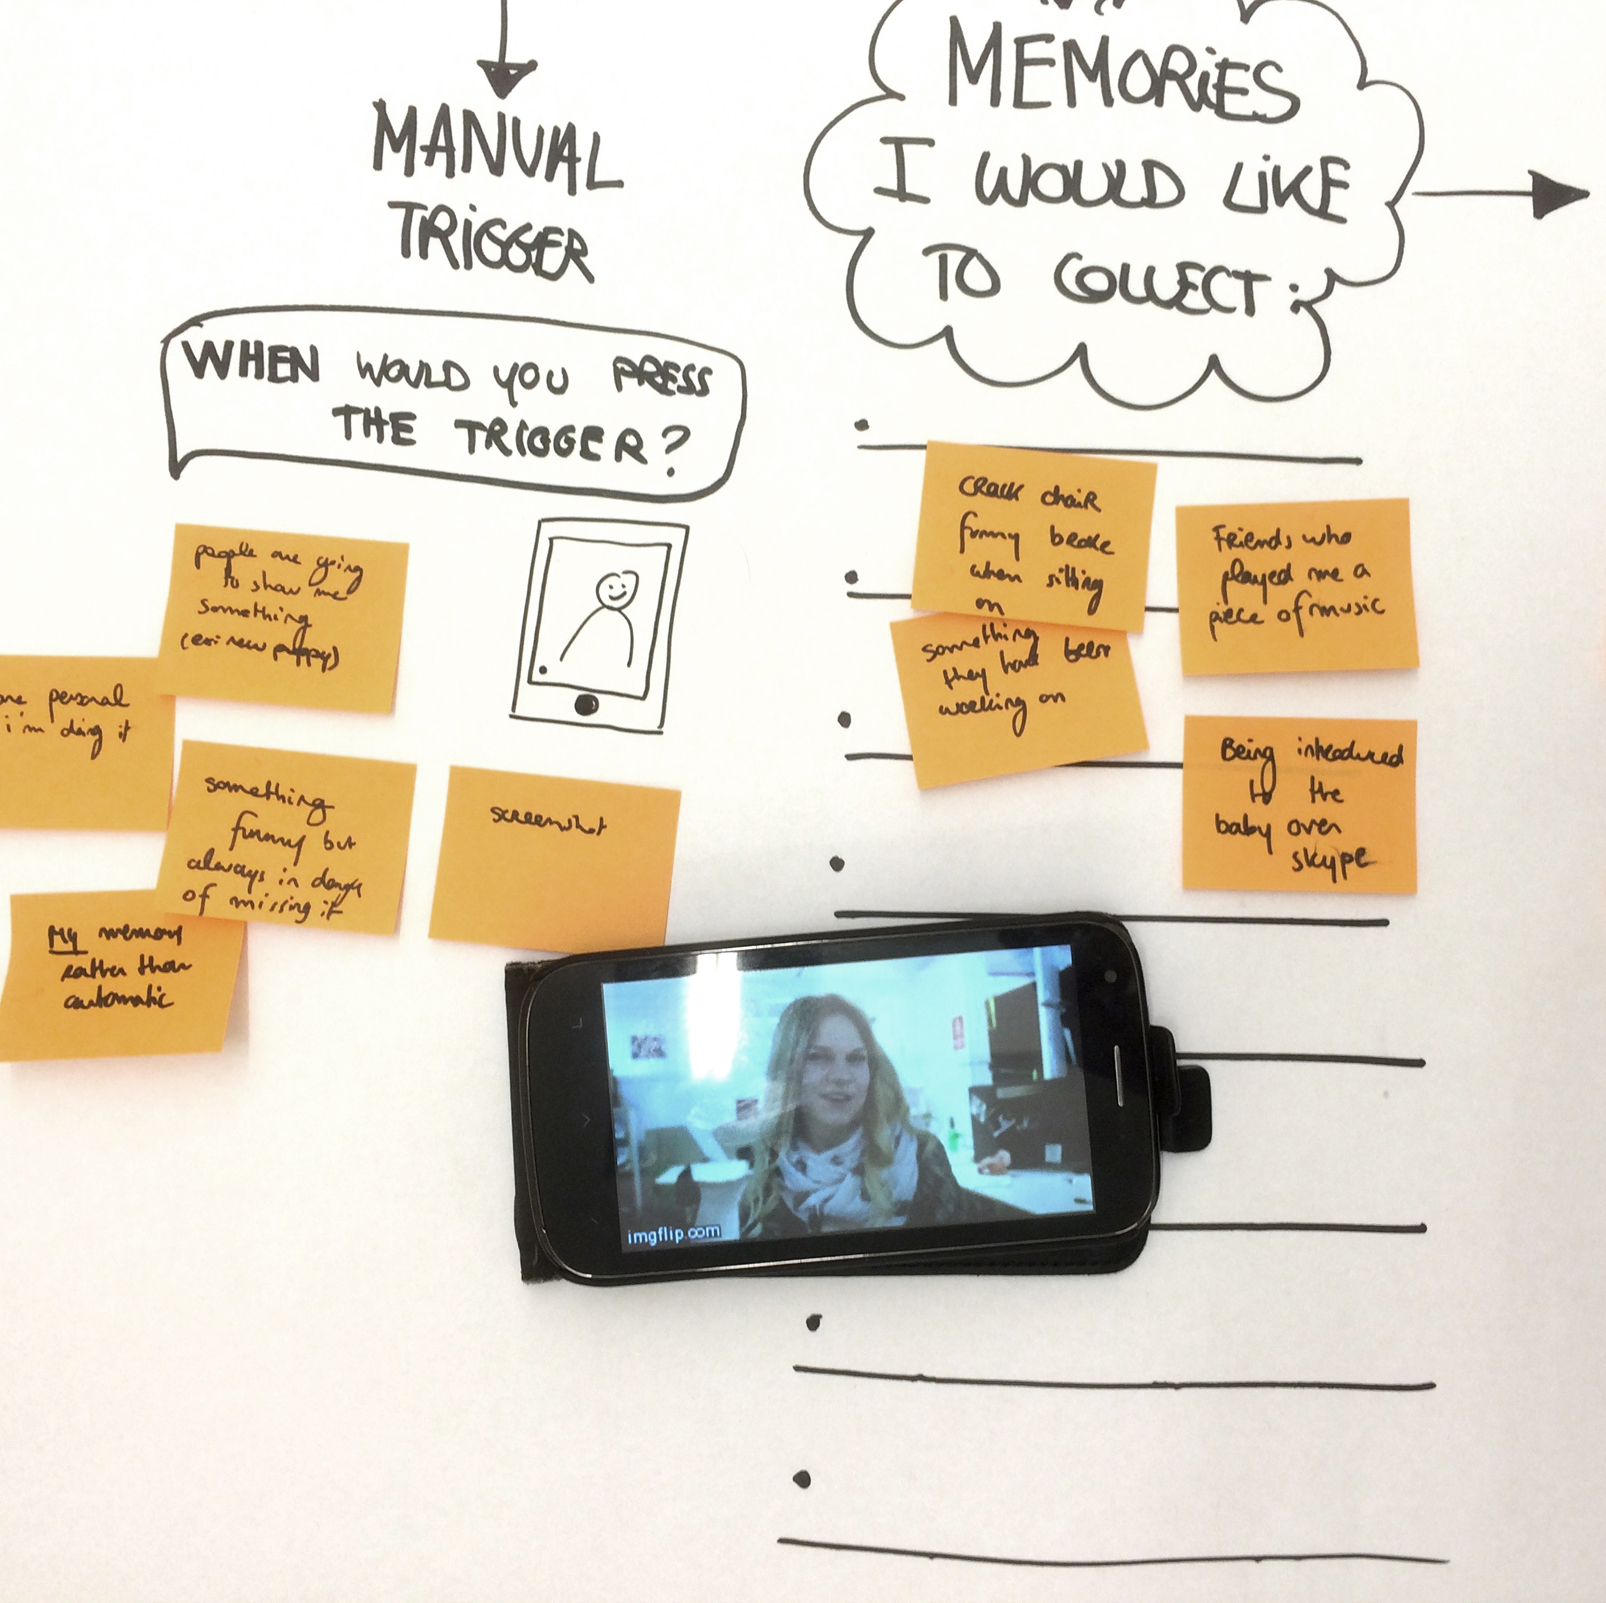 MANUAL
TRIGGER
WHEN WOULD YOU PRESS
THE TRIGGER?
people are going
to show me
something
(ex: new puppy)
personal
i'm doing it
something
funny but
always in danger
of missing it
screenshot
My memory
rather than
automatic
MEMORIES
I WOULD LIKE
TO COLLECT:
CRack chaiR
funny broke
when sitting
on
something
they have been
working on
Friends who
played me a
piece of music
Being introduced
to the
baby over
skype
imgflip.com